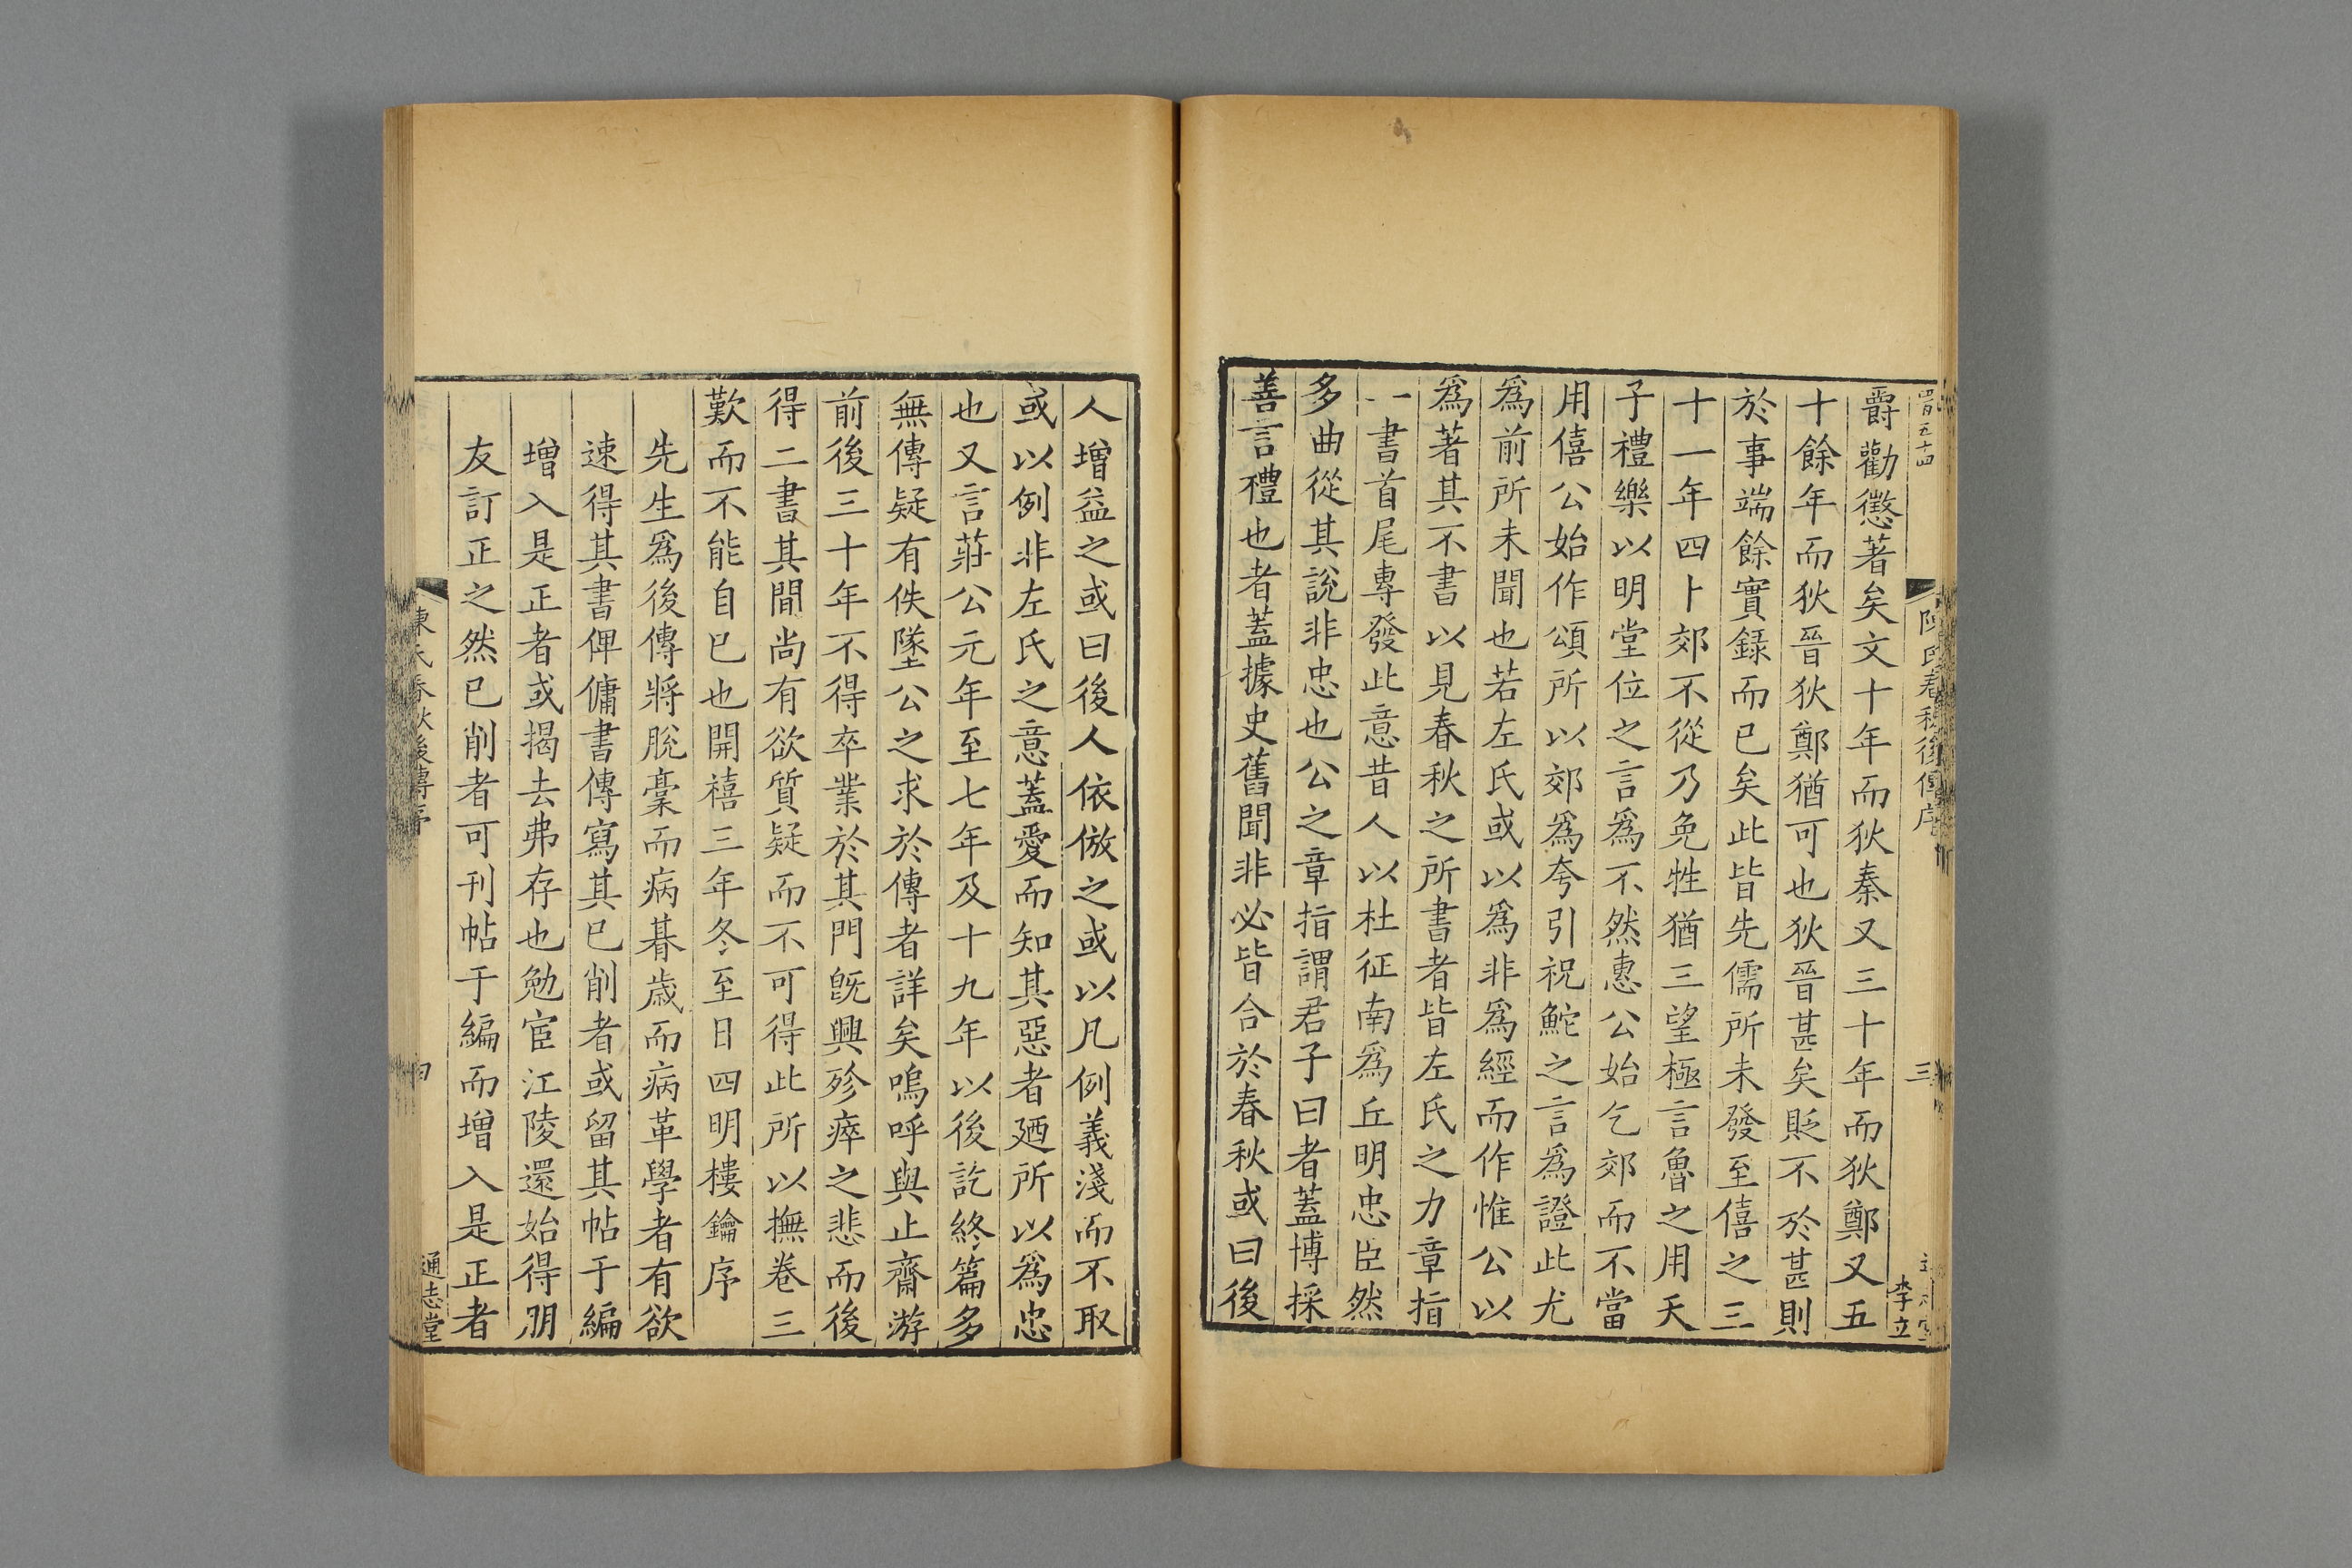 四百五十四
爵勸懲著矣文十年而狄秦又三十年而狄鄭又五
十餘年而狄晉狄鄭猶可也狄晉甚矣貶不於甚則
於事端餘實録而已矣此皆先儒所未發至僖之三
十一年四卜郊不從乃免牲猶三望極言魯之用天
子禮樂以明堂位之言爲不然惠公始乞郊而不當
用僖公始作頌所以郊爲夸引祝鮀之言爲證此尤
爲前所未聞也若左氏或以爲非爲經而作惟公以
爲著其不書以見春秋之所書者皆左氏之力章指
一書首尾專發此意昔人以杜征南爲丘明忠臣然
多曲從其說非忠也公之章指謂君子曰者蓋博採
善言禮也者蓋據史舊聞非必皆合於春秋或曰後
陳氏春秋後傳序
三
李立
人增益之或曰後人依倣之或以凡例義淺而不取
或以例非左氏之意蓋愛而知其惡者廼所以爲忠
也又言莊公元年至七年及十九年以後訖終篇多
無傳疑有佚墜公之求於傳者詳矣嗚呼與止齋游
前後三十年不得卒業於其門旣興殄瘁之悲而後
得二書其間尚有欲質疑而不可得此所以撫卷三
歎而不能自已也開禧三年冬至日四明樓鑰序
先生爲後傳將脫槀而病朞歳而病革學者有欲
速得其書俾傭書傳寫其已削者或留其帖于編
增入是正者或揭去弗存也勉宦江陵還始得朋
友訂正之然已削者可刊帖于編而增入是正者
陳氏春秋後傳序
四
通志堂